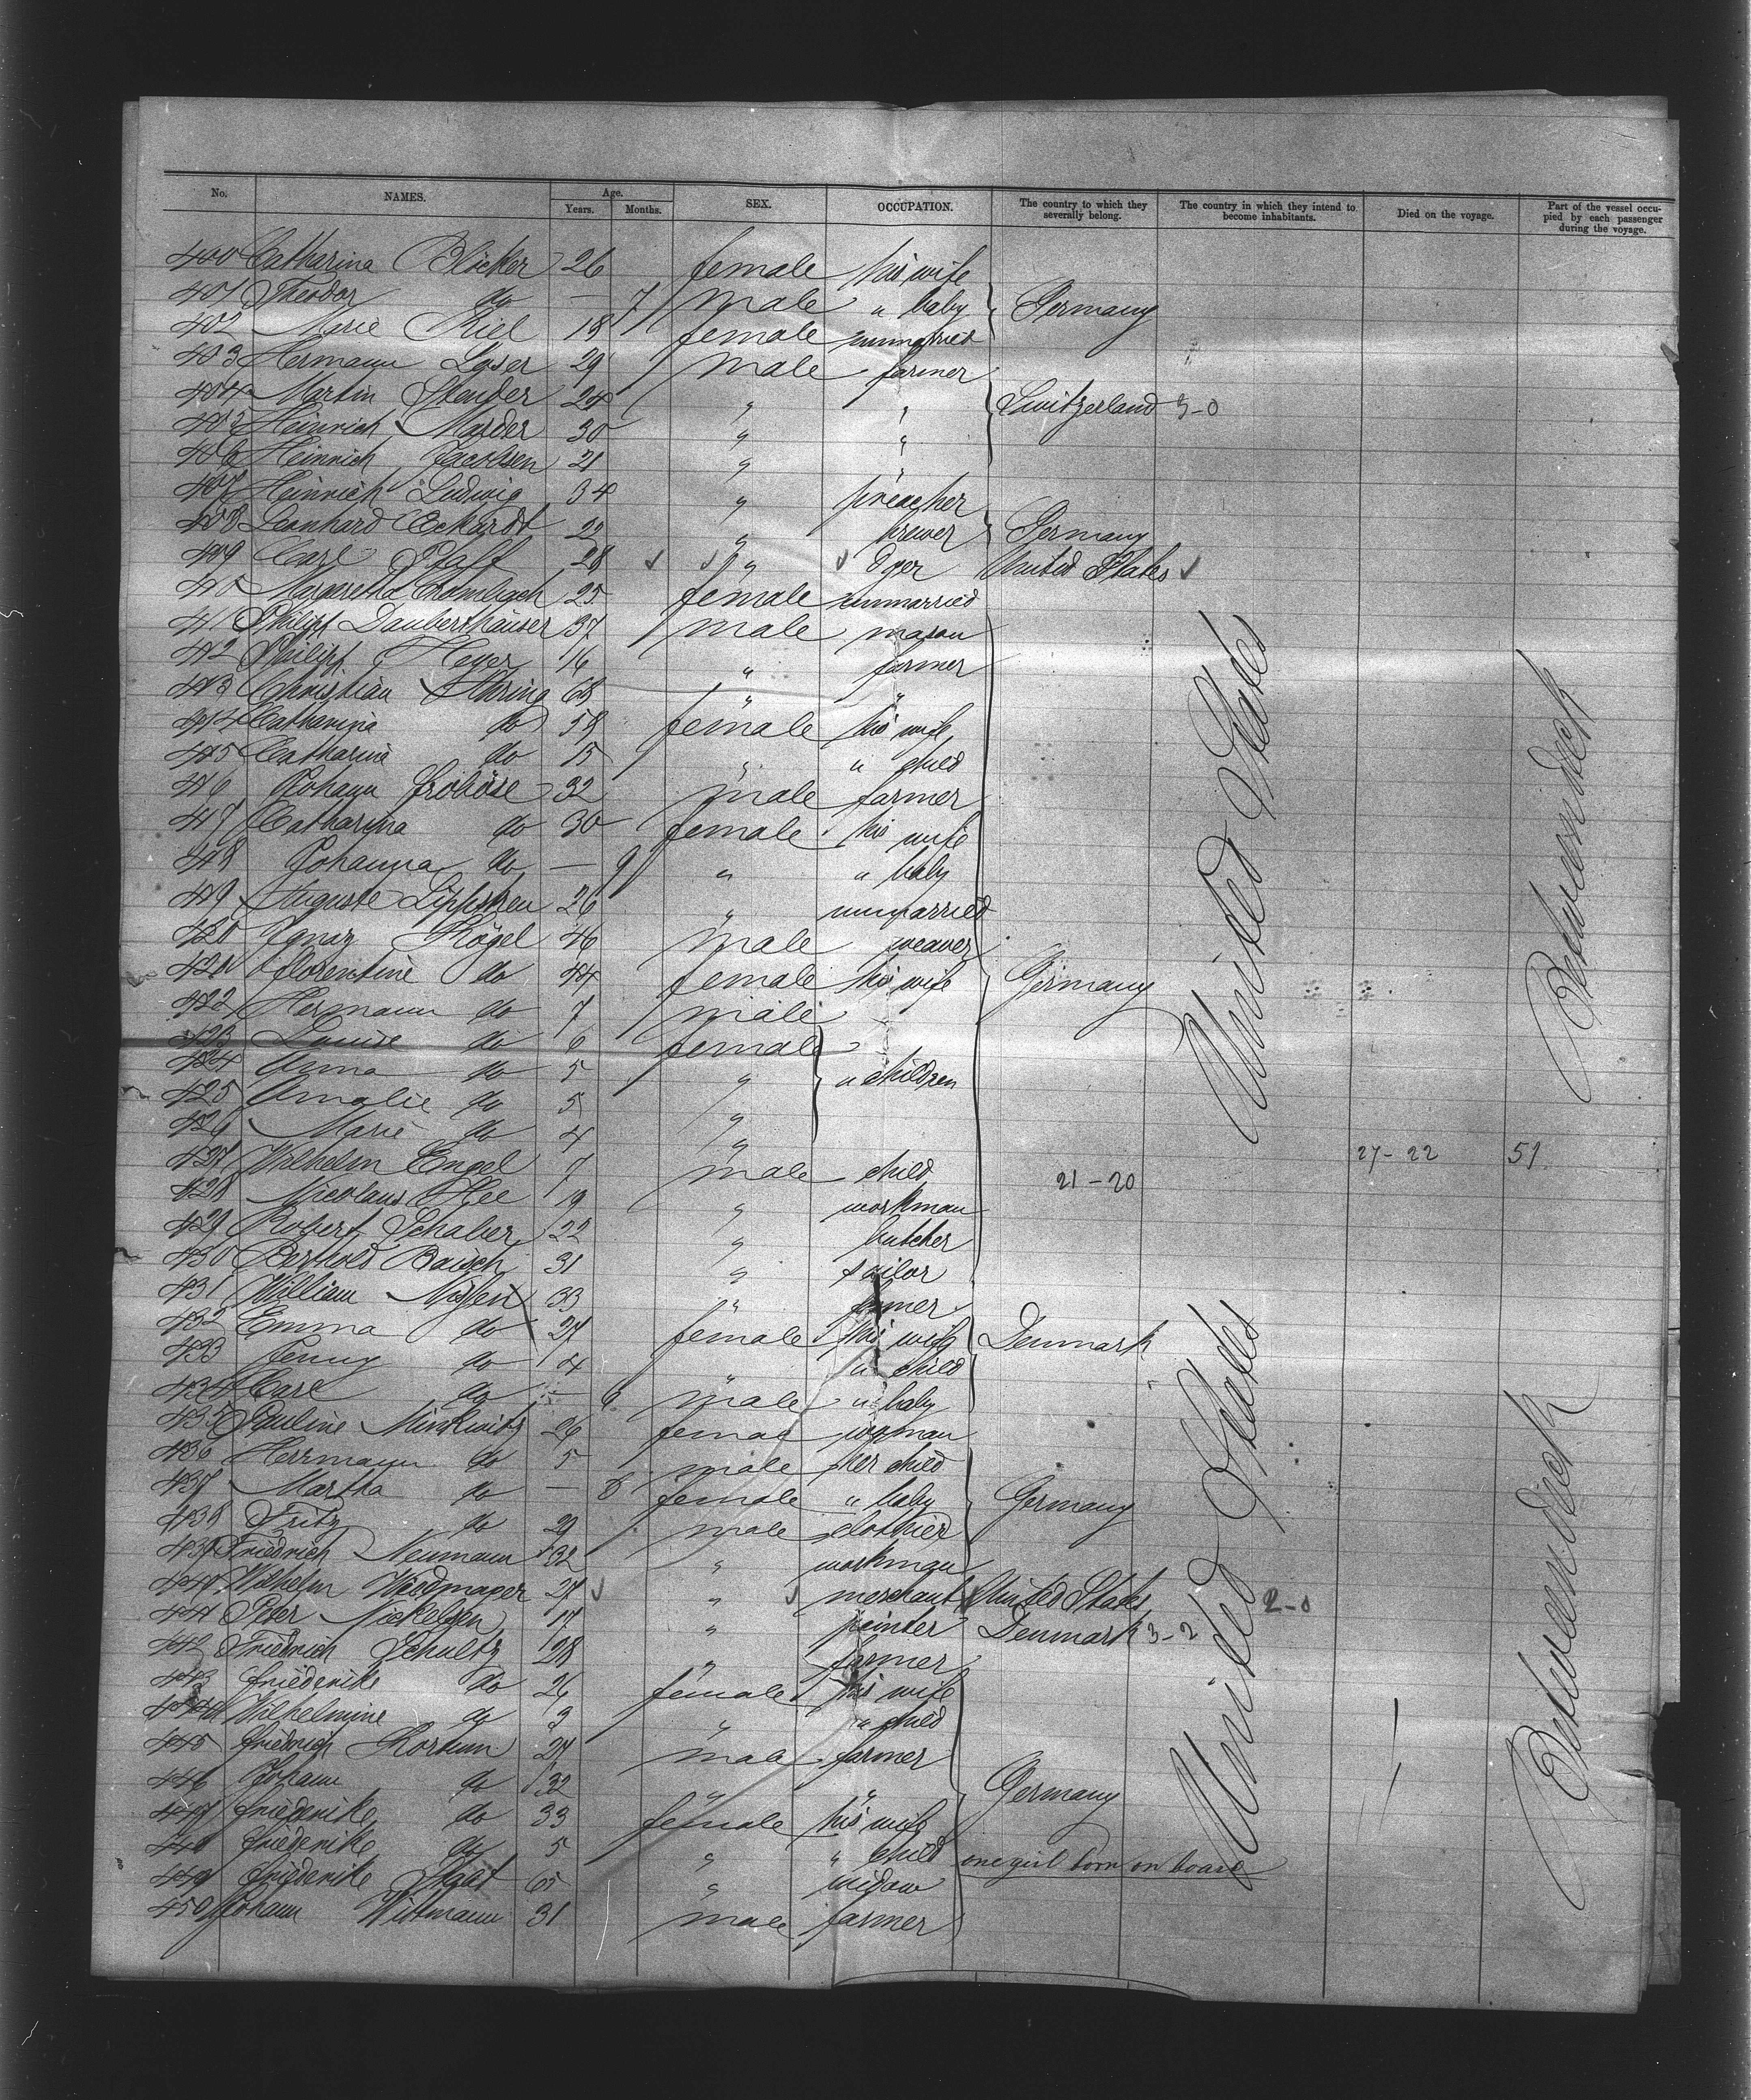 No. NAMES. Age. Years. Months. SEX. OCCUPATION. The country to which they severally belong. The country in which they intend to become inhabitants. Died on the voyage. Part of the vessel occupied by each passenger during the voyage.
400 Catharina Blöcker 26 female his wife
401 Theodor do — 7 male " baby Germany
402 Marie Kiel 18 female unmarried
403 Hermann Loser 29 male farmer
404 Martin Stender 24 " " Switzerland 3-0
405 Heinrich Marder 30 " "
406 Heinrich Jacobsen 21 " "
407 Heinrich Ludwig 34 " preacher
408 Leonhard Eckardt 22 " brewer Germany
409 Carl Pfaff 28 " United States
410 Margaretha 25 female unmarried
411 Philipp Dauberthäuser 37 male mason
412 Philipp Heyer 16 " farmer
413 Christian 68 " "
414 Catharina do 58 female his wife
415 Catharine do 15 " " child
416 Johann Froböse 32 male farmer
417 Catharina do 30 female his wife
418 Johanna do — 9 " " baby
419 Auguste 26 " unmarried
420 Ignaz Kögel 46 male weaver
421 Florentine do 44 female his wife Germany
422 Hermann do 7 male
423 Louise do 6 female
424 Anna do 5 " " children
425 Amalie do 5 "
426 Marie do 4 "
427 Wilhelm Engel 7 male child 21-20 27-22 51
428 Nicolaus Klee 19 " workman
429 Robert Schaber 22 " butcher
430 Berthold Bausch 31 " tailor
431 William Nissen 33 " farmer
432 Emma do 27 female his wife Denmark
433 Jenny do 4 " " child
434 Carl do — 9 male " baby
435 Pauline Minkwitz 26 female woman
436 Herrmann do 5 male her child
437 Martha do — 8 female " baby Germany
438 Fritz do 29 male clothier
439 Friedrich Neumann 32 " workman
440 Wilhelm Wiedmayer 27 " merchant United States 2-0
441 Peter Nickelsen 17 " painter Denmark 3-2
442 Friedrich Schultz 28 " farmer
443 Friederike do 26 female his wife
444 Wilhelmine do 3 " " child
445 Friedrich Kortum 27 male farmer
446 Johann do 32 " " Germany
447 Friederike do 33 female his wife
448 Friederike do 5 " " child one girl born on board
449 Friederike 65 " widow
450 Johann Wittmann 31 male farmer
United States
Between deck
United States
Between deck